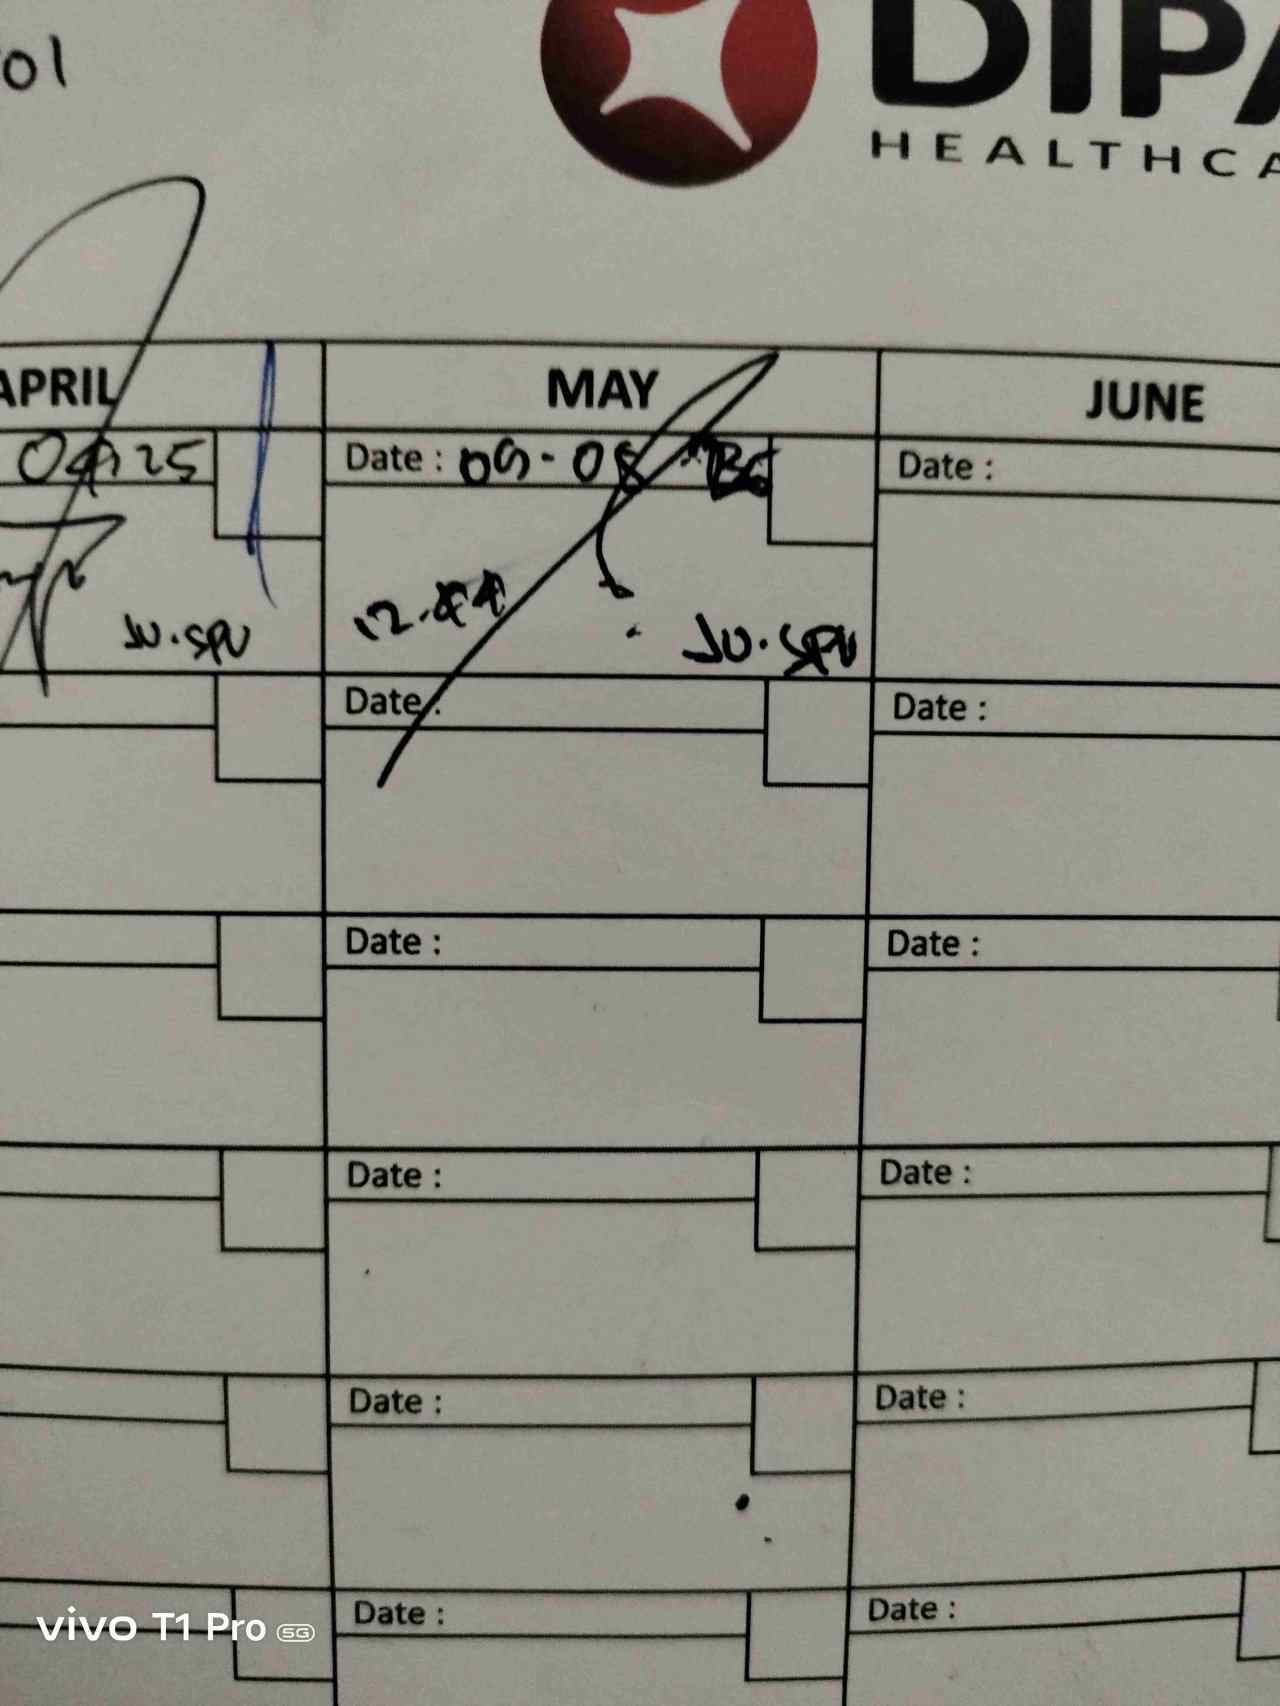 01
DIPA
HEALTHCA
APRIL MAY JUNE
04 25 Date : 09-05 Date :
12.44
JU.SPV JU.SPV
Date : Date :
Date : Date :
Date : Date :
Date : Date :
Date : Date :
vivo T1 Pro 5G